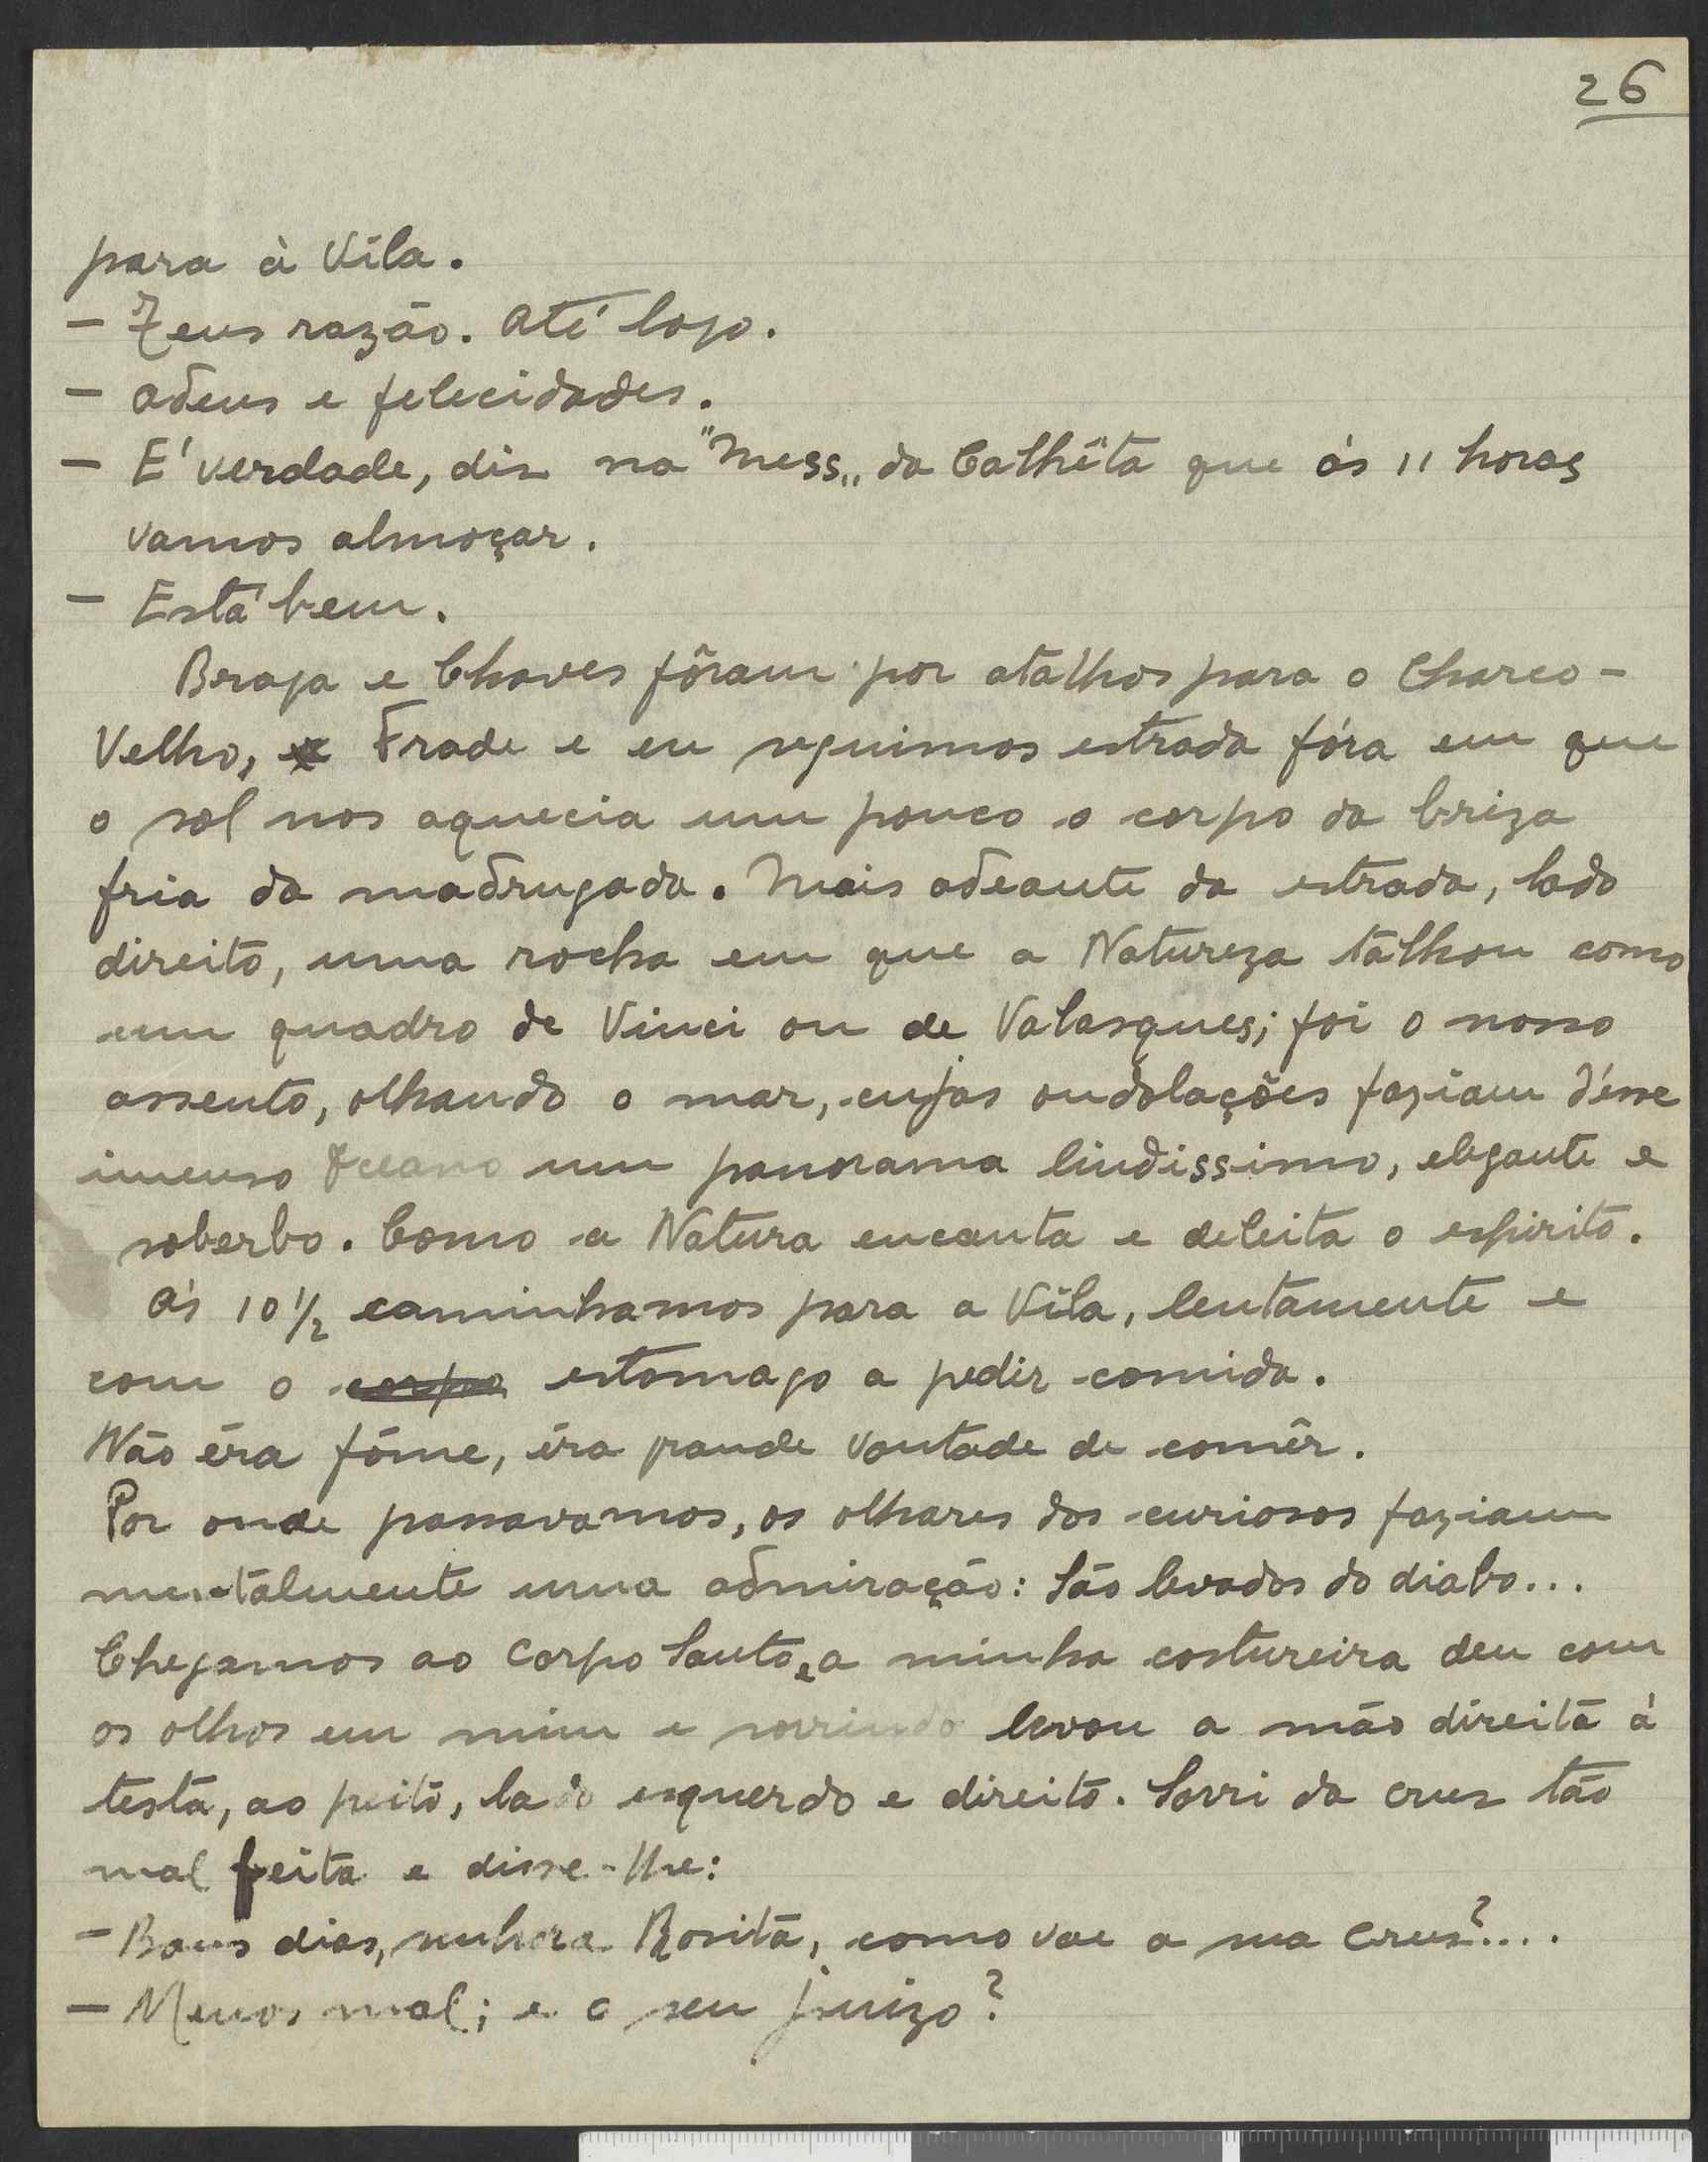 26
para à Vila.
— Tens razão. Até logo.
— Adeus e felecidades.
— E' verdade, diz na "Mess" da Calhêta que ás 11 horas
vamos almoçar.
— Está bem.
Braga e Chaves fôram por atalhos para o Charco-
Velho, Frade e eu seguimos estrada fóra em que
o sol nos aquecia um pouco o corpo da briza
fria da madrugada. Mais adeante da estrada, lado
direito, uma rocha em que a Natureza talhou como
um quadro de Vinci ou de Valasques; foi o nosso
assento, olhando o mar, cujas ondolações faziam d'ésse
imenso Oceano um panorama lindissimo, elegante e
soberbo. Como a Natura encanta e deleita o espirito.
Ás 10 1/2 caminhamos para a Vila, lentamente e
com o corpo estomago a pedir comida.
Não éra fóme, éra grande vontade de comêr.
Por onde passavamos, os olhares dos curiosos faziam
mentalmente uma admiração: São levados do diabo...
Chegamos ao Corpo Santo e a minha costureira deu com
os olhos em mim e sorrindo levou a mão direita á
testa, ao peito, lado esquerdo e direito. Sorri da cruz tão
mal feita e disse-lhe:
— Bons dias, senhora Rosita, como vae a sua cruz?....
— Menos mal; e o seu juizo?